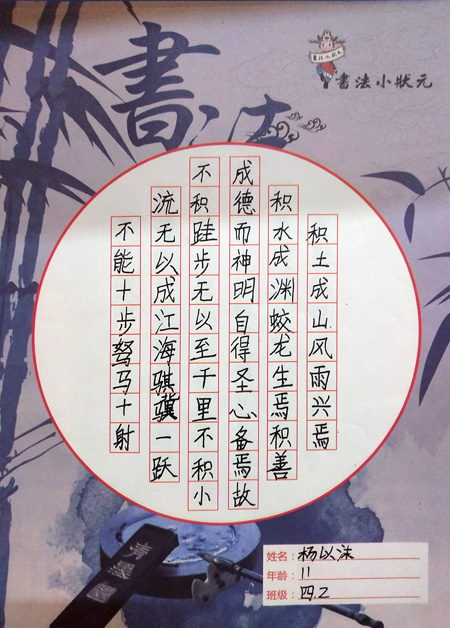 書法
書法小狀元
积土成山风雨兴焉
积水成渊蛟龙生焉积善
成德而神明自得圣心备焉故
不积跬步无以至千里不积小
流无以成江海骐骥一跃
不能十步驽马十射
姓名：杨以沫
年龄：11
班级：四.2